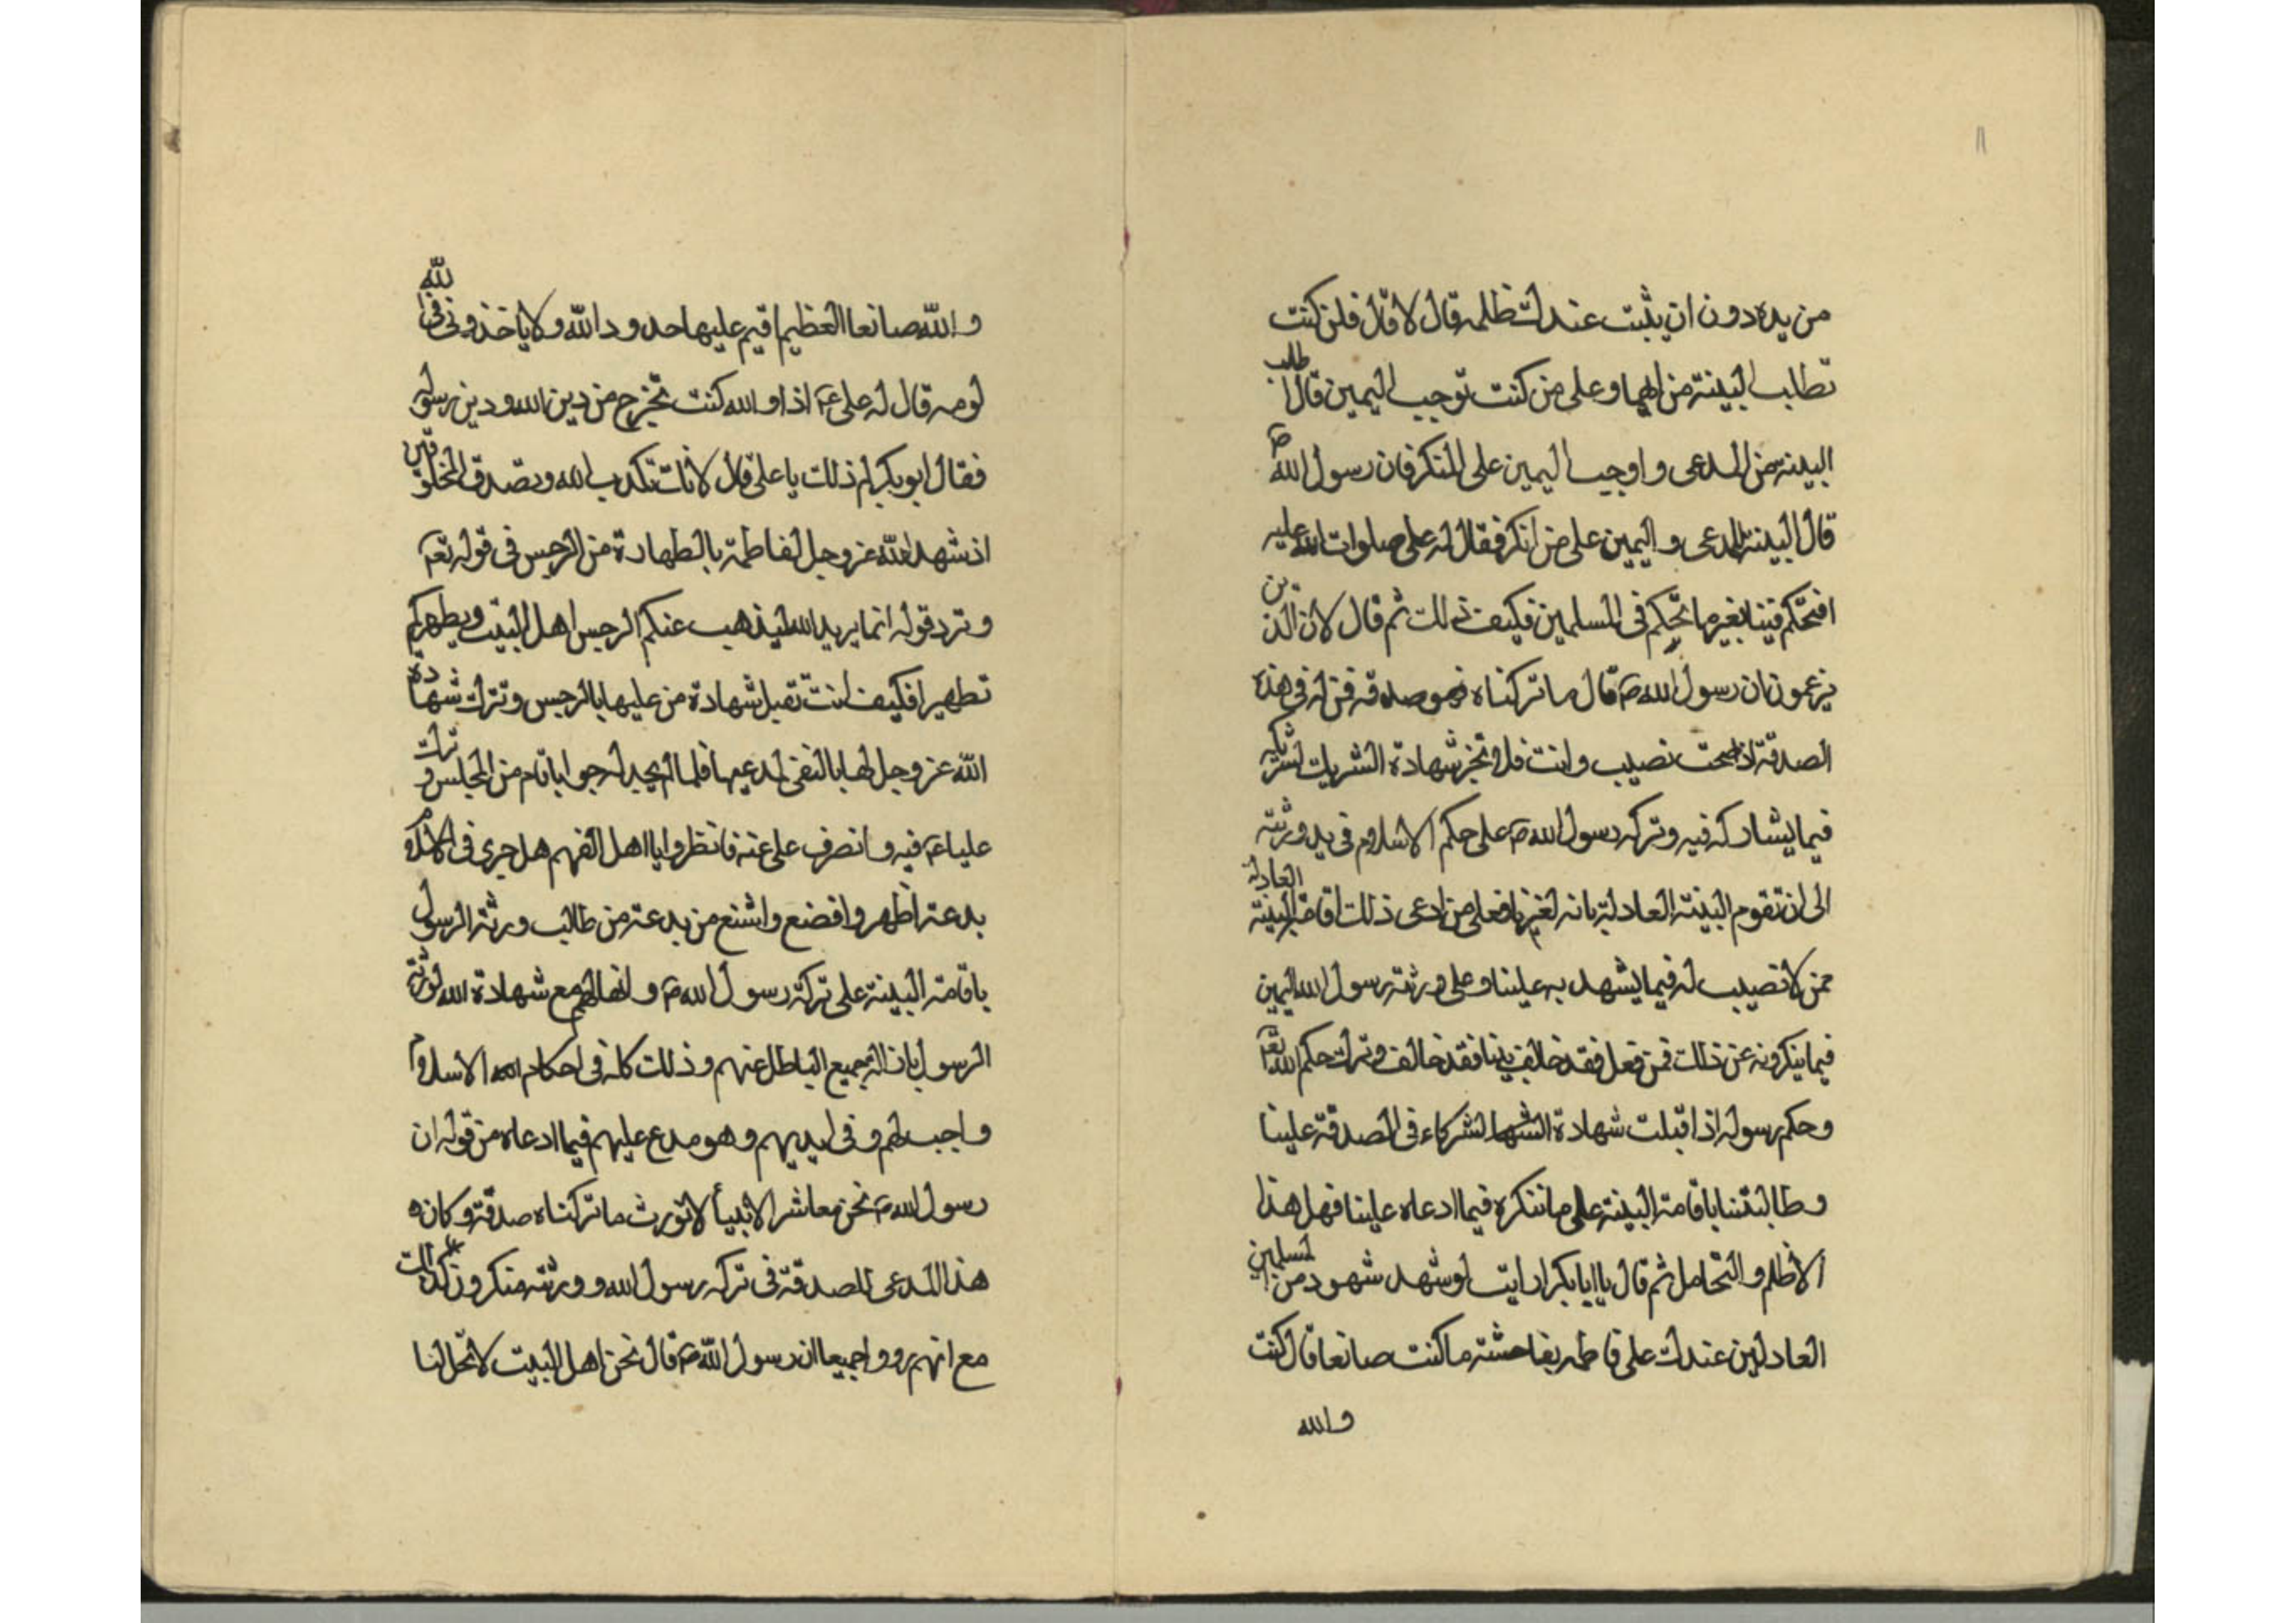 ۱۱
من يده دون ان يثبت عندك ظلمه قال لا قال فلمن كنت
تطلب البينة من ايهما وعلى من كنت توجب اليمين قال اطلب
البينة من المدعى واوجب اليمين على المنكر فان رسول الله ص
قال البينة للمدعى واليمين على من انكر فقال له على صلوات الله عليه
افتحكم فينا بغير ما تحكم فى المسلمين فكيف ذلك ثم قال لان الذين
يزعمون ان رسول الله ص قال ما تركناه فهو صدقه فمن له فى هذه
الصدقة اذا صحت نصيب وانت فلا تجز شهادة الشريك لشريكه
فيما يشاركه فيه وتركه رسول الله ص على حكم الاسلام فى يد ورثته
الى ان تقوم البينة العادلة بانه لغيرنا فعلى من ادعى ذلك اقامة البينة العادلة
ممن لا نصيب له فيما يشهد به علينا وعلى ورثة رسول الله اليمين
فيما ينكرونه عن ذلك فمن فعل فقد خالف نبينا فقد خالف وترك حكم الله تعا
وحكم رسوله اذا قبلت شهادة الشركاء فى الصدقة علينا
وطالبتنا باقامة البينة على ما ننكره فيما ادعاه علينا فهل هذا
الا ظلم والتحامل ثم قال يا ابا بكر ارايت لو شهد شهود من المسلمين
العادلين عندك على فاطمه بفاحشة ما كنت صانعا قال كنت
والله
والله صانعا العظيم اقيم عليها حدود الله ولا ياخذونى فى الله
لومه قال له على ع اذا والله كنت تخرج من دين الله ودين رسوله
فقال ابو بكر لم ذلك يا على قال لانك تكذب الله وتصدق المخلوقين
اذ شهد الله عز وجل لفاطمة بالطهارة من الرجس فى قوله تع
وترد قوله انما يريد الله ليذهب عنكم الرجس اهل البيت ويطهركم
تطهيرا فكيف انت تقبل شهادة من عليها بالرجس وتترك شهادة
الله عز وجل لها بالنفى لمدعيها فلما لم يجد له جوابا قام من المجلس وترك
عليا ع فيه وانصرف على عنه فانظروا يا اهل الفهم هل جرى فى الاسلام
بدعة اظهر وافضع واشنع من بدعة من طالب ورثة الرسول
باقامة البينة على تركة رسول الله ص وانها لهم مع شهادة الله لورثة
الرسول بازالة جميع الباطل عنهم وذلك كله فى احكام الاسلام
واجب لهم وفى ايديهم وهو مدع عليهم فيما ادعاه من قوله ان
رسول الله ص نحن معاشر الانبيأ لا نورث ما تركناه صدقة وكان
هذا المدعى للصدقة فى تركه رسول الله وورثته منكرون لذلك
مع انهم رووا جميعا ان رسول الله ص قال نحن اهل البيت لا تحل لنا